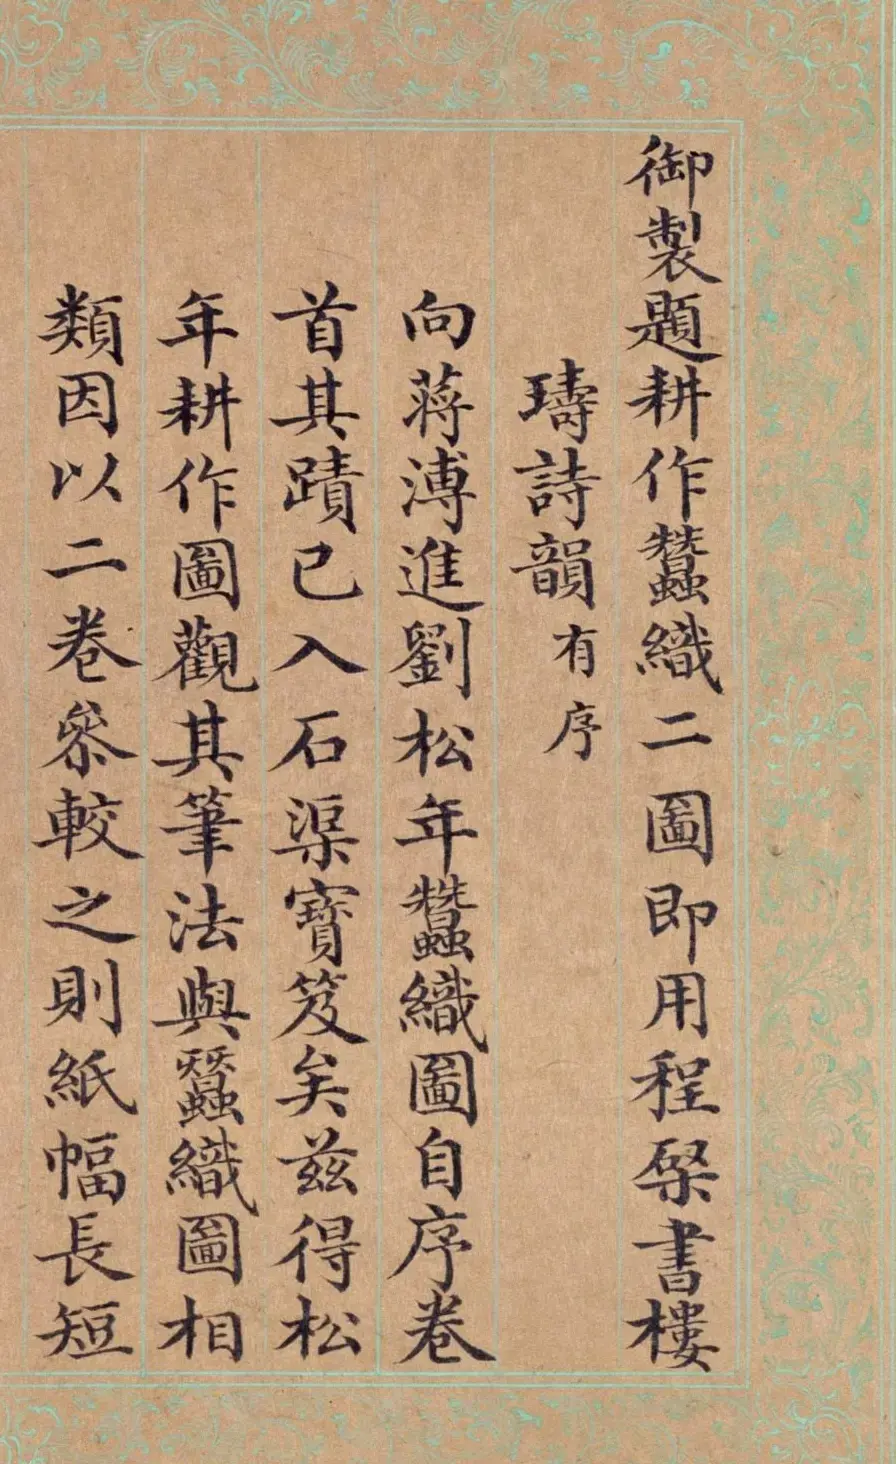 御製題耕作蠶織二圖即用程棨書樓
璹詩韻有序
向蔣溥進劉松年蠶織圖自序卷
首其蹟已入石渠寶笈矣茲得松
年耕作圖觀其筆法與蠶織圖相
類因以二卷叅較之則紙幅長短